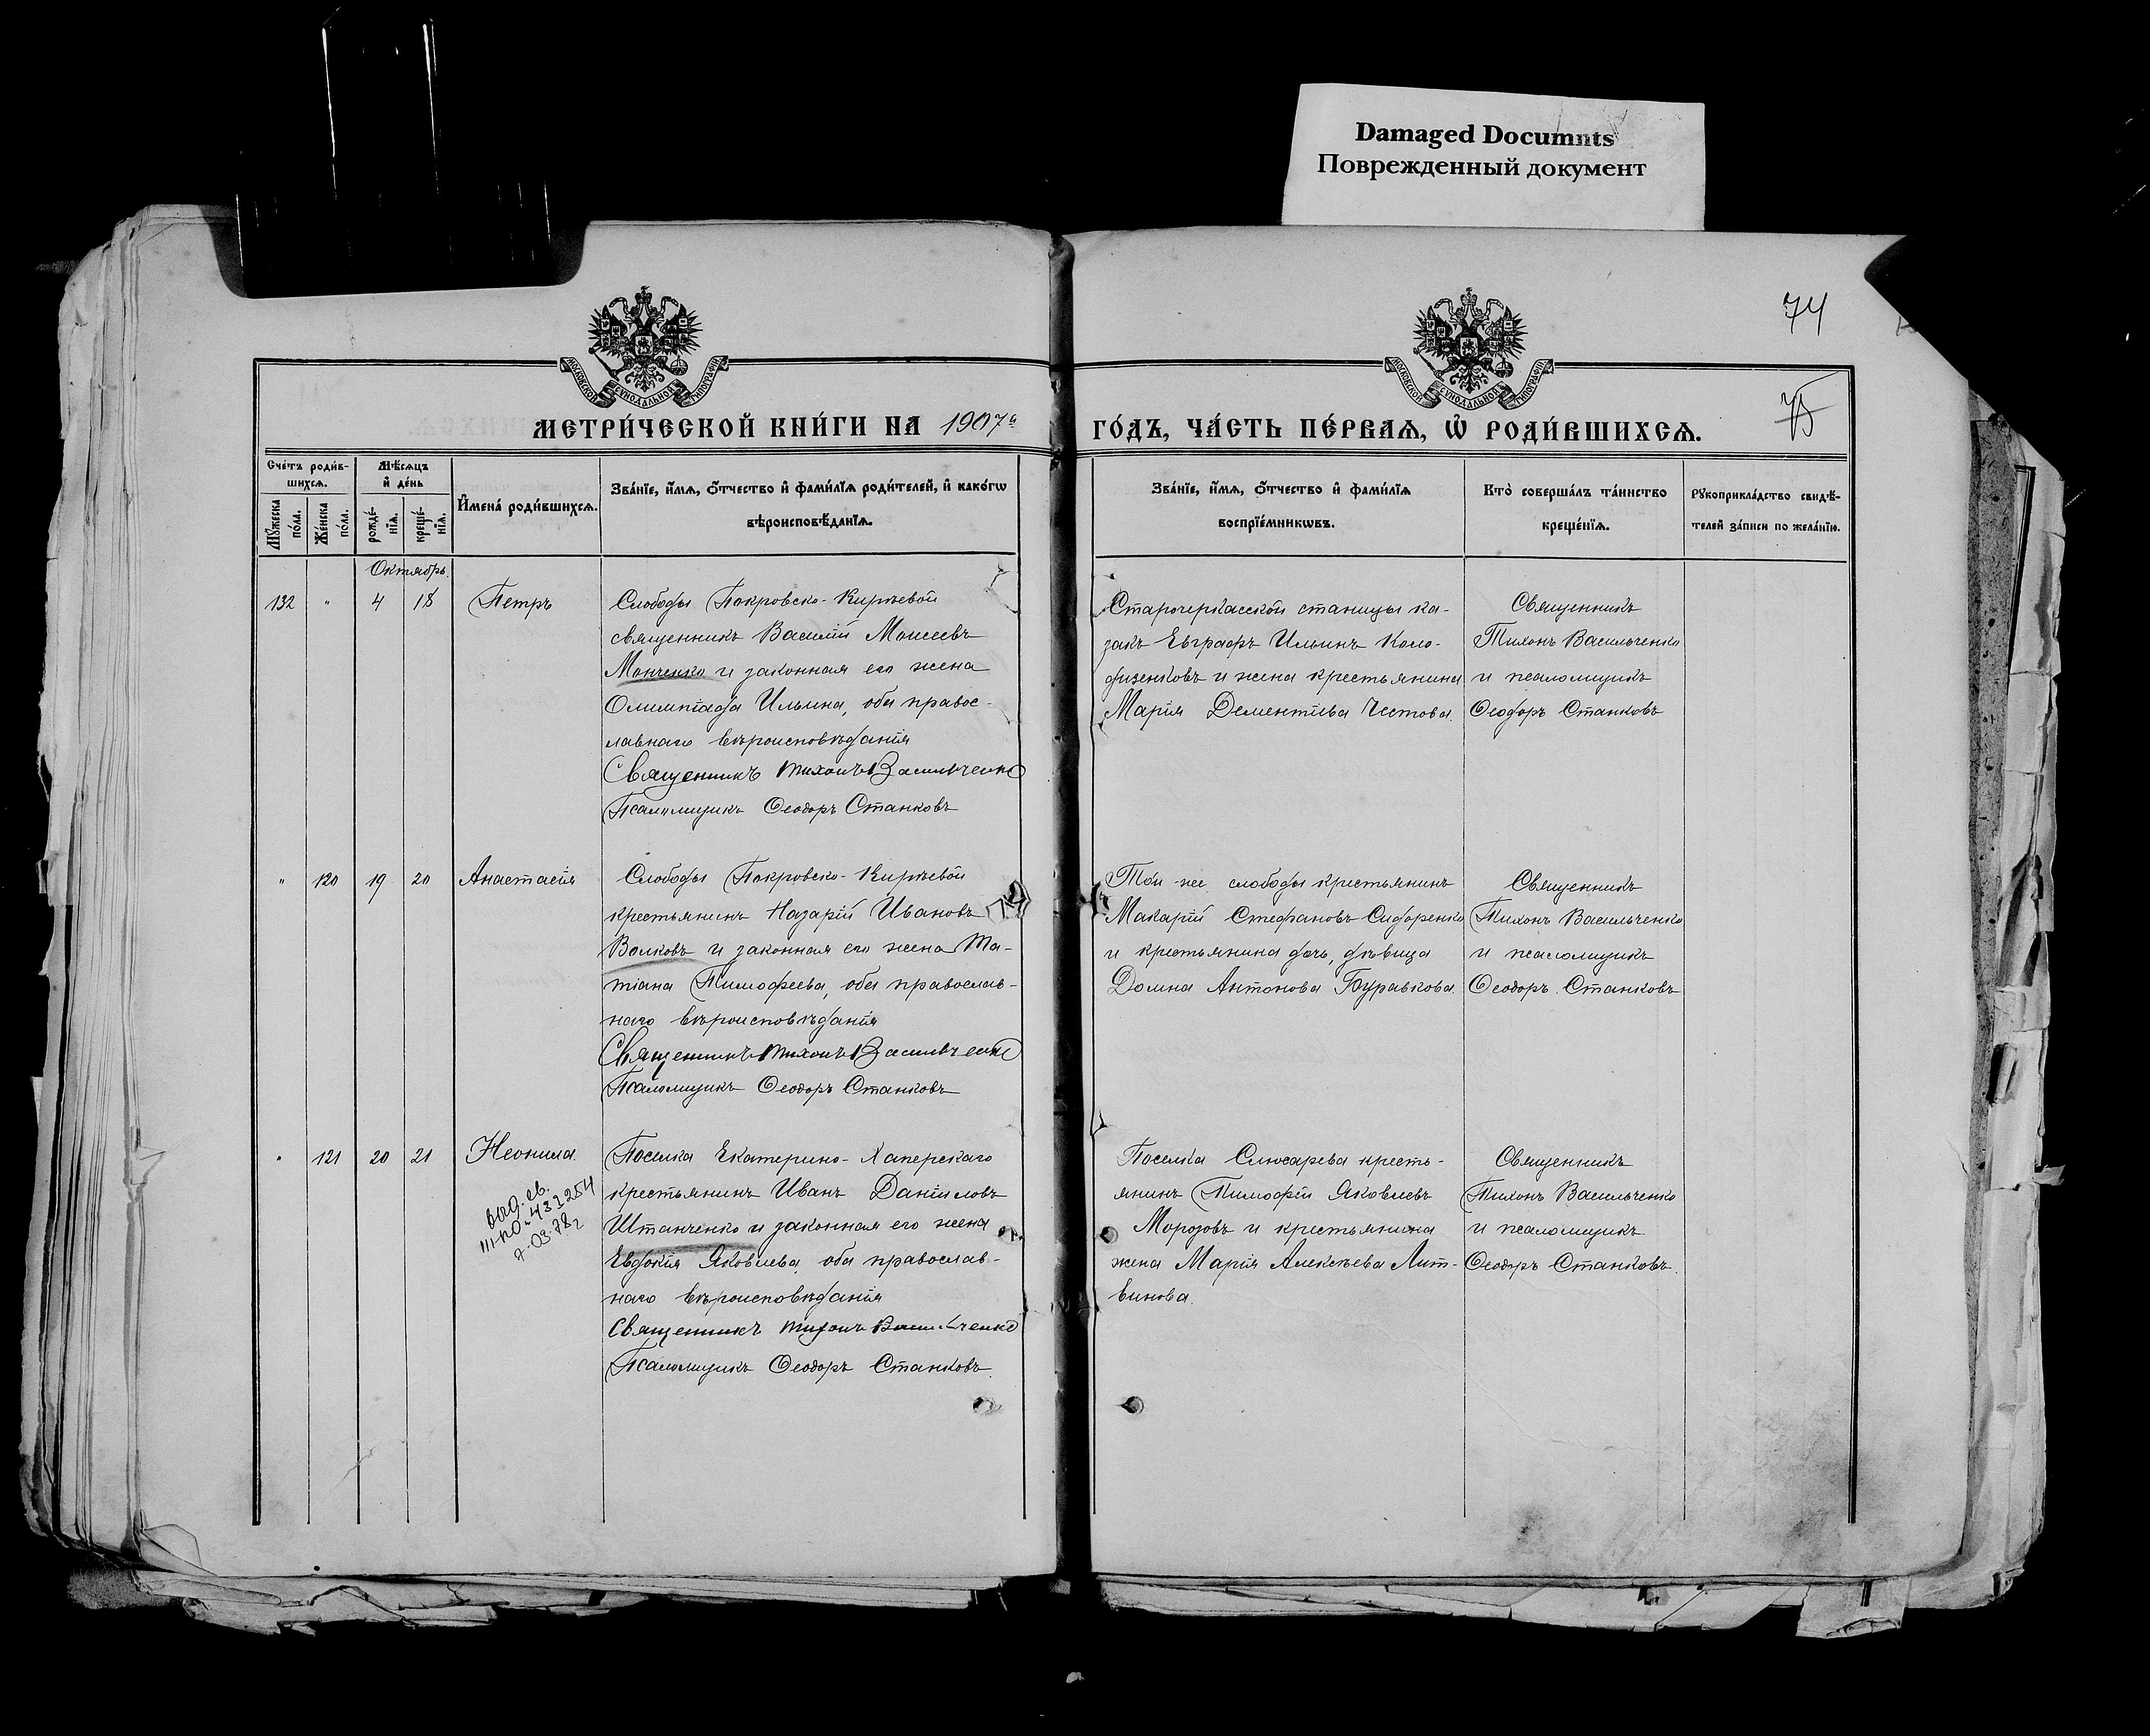 Damaged Documnts
Поврежденный документ
74
МОСКОВСКОЙ СѴНОДАЛЬНОЙ ТИПОГРАФІИ
МОСКОВСКОЙ СѴНОДАЛЬНОЙ ТИПОГРАФІИ
МЕТРИ́ЧЕСКОЙ КНИ́ГИ НА 1907й
ГО́ДЪ, ЧА́СТЬ ПЕ́РВАѦ, Ѡ҆ РОДИ́ВШИХСѦ.
75
Сче́тъ роди́в-
шихсѧ.
Мꙋ́жеска по́ла.
Же́нска по́ла.
Мѣ́сѧцъ
и҆ де́нь
рожде́-
нїѧ.
креще́-
нїѧ.
И҆мена̀ роди́вшихсѧ.
Зва́нїе, и҆́мѧ, ѻ҆́тчество и҆ фами́лїѧ роди́телей, и҆ како́гѡ
вѣроисповѣ́данїѧ.
Зва́нїе, и҆́мѧ, ѻ҆́тчество и҆ фами́лїѧ
воспрїе́мникѡвъ.
Кто̀ соверша́лъ та́инство
креще́нїѧ.
Рꙋкоприкла́дство свидѣ́-
телей за́писи по жела́нїю.
Октябрь.
132 " 4 18 Петръ
Слободы Покровско-Кирѣевой
священникъ Василій Моисеевъ
Монченко и законная его жена
Олимпіада Ильина, оба правос-
лавнаго вѣроисповѣданія
Священникъ Тихонъ Васильченко
Псаломщикъ Ѳеодоръ Станковъ
Старочеркасской станицы ка-
закъ Евграфъ Ильинъ Коло-
дизенковъ и жена крестьянина
Марія Дементіева Честова.
Священникъ
Тихонъ Васильченко
и псаломщикъ
Ѳеодоръ Станковъ
" 120 19 20 Анастасія
Слободы Покровско-Кирѣевой
крестьянинъ Назарій Ивановъ
Волковъ и законная его жена Та-
тіана Тимофеева, оба православ-
наго вѣроисповѣданія
Священникъ Тихонъ Васильченко
Псаломщикъ Ѳеодоръ Станковъ
Той-же слободы крестьянинъ
Макарій Стефановъ Сидоренко
и крестьянина дочь, дѣвица
Домна Антонова Буравкова.
Священникъ
Тихонъ Васильченко
и псаломщикъ
Ѳеодоръ Станковъ
" 121 20 21 Неонила.
выд. св.
III-ПО-433254
7-03-78г
Поселка Екатерино-Хаперскаго
крестьянинъ Иванъ Даніиловъ
Штанченко и законная его жена
Евдокія Яковлева, оба православ-
наго вѣроисповѣданія
Священникъ Тихонъ Васильченко
Псаломщикъ Ѳеодоръ Станковъ.
Поселка Слюсарева кресть-
янинъ Тимофей Яковлевъ
Морозовъ и крестьянина
жена Марія Алексѣева Лит-
винова.
Священникъ
Тихонъ Васильченко
и псаломщикъ
Ѳеодоръ Станковъ.